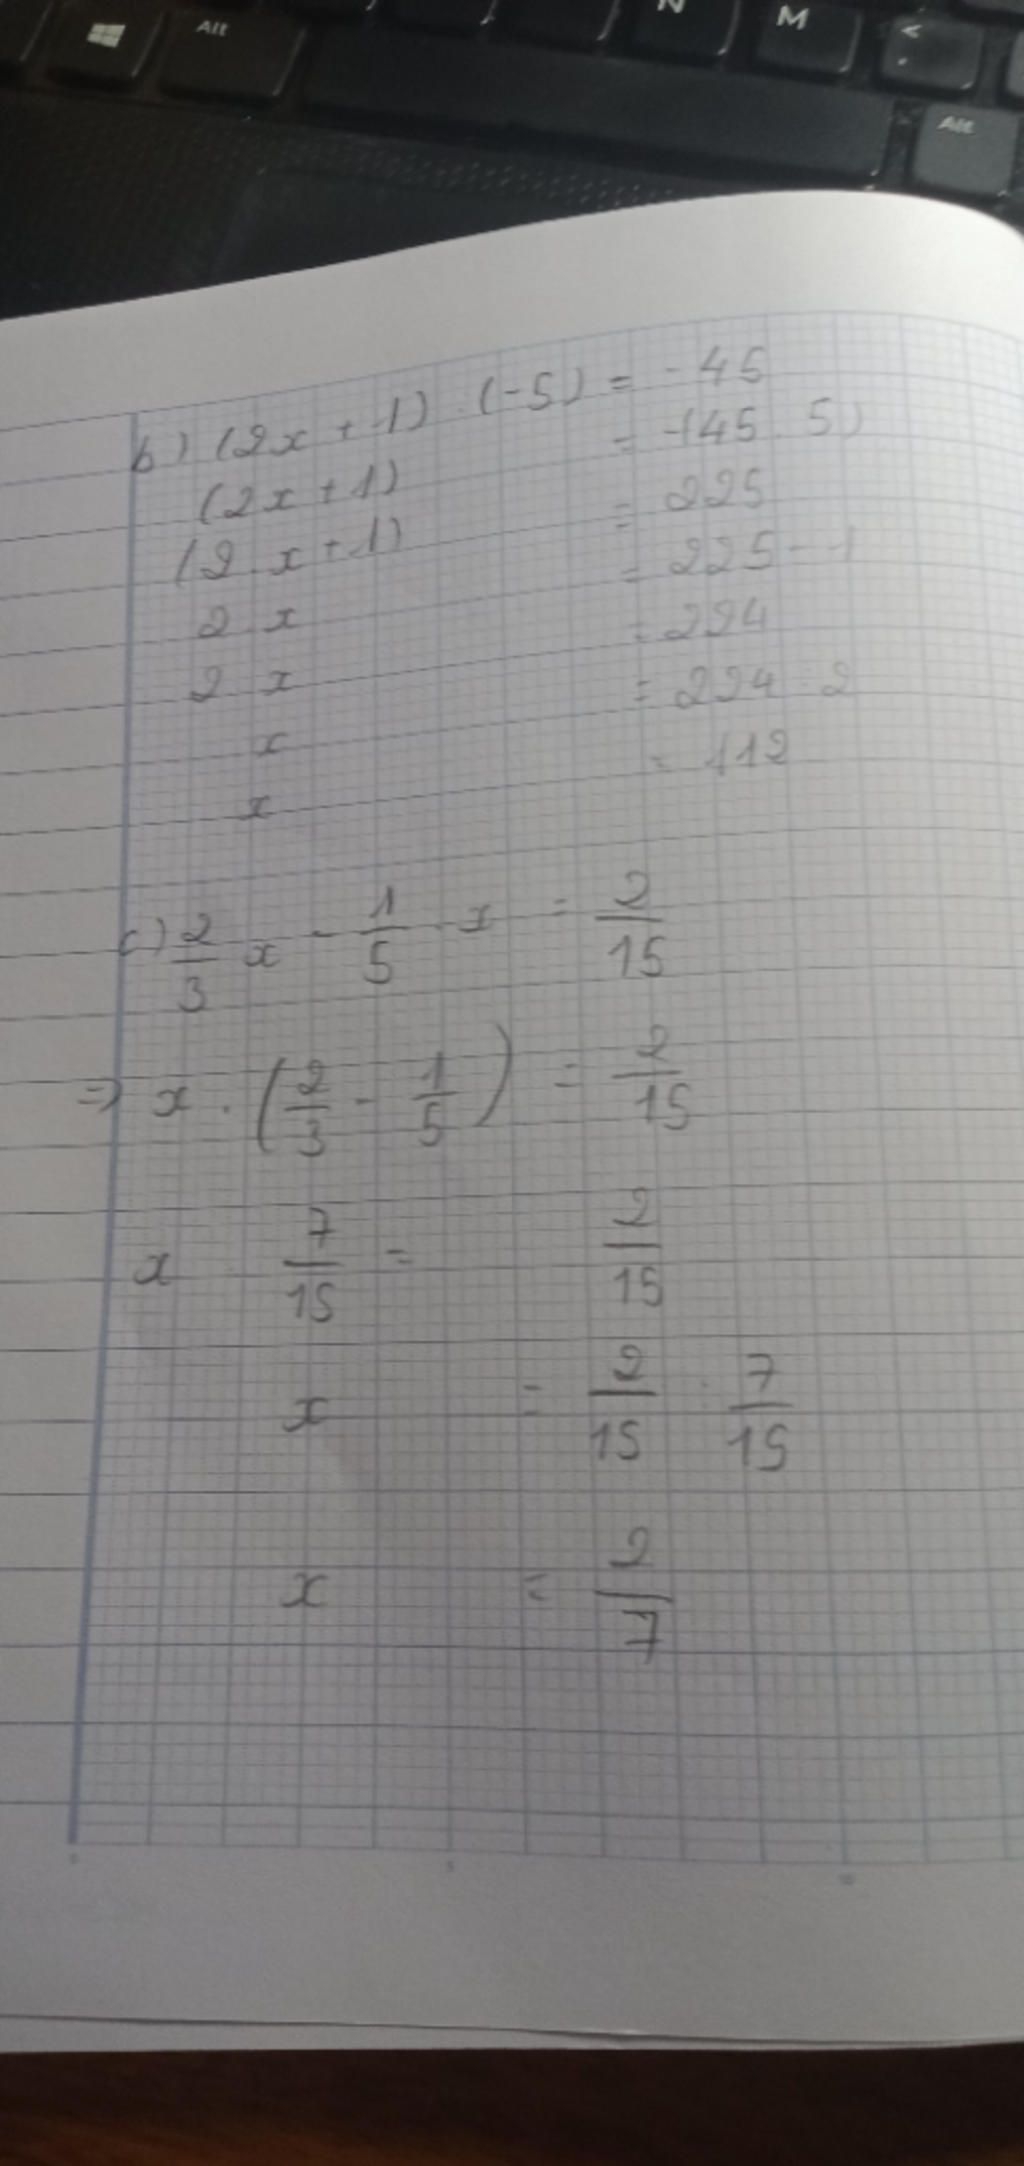 Alt
N
M
<
Alt
b) (2x + 1) . (-5) = -45
(2x + 1) = -(45 . 5)
(2 x + 1) = 225
2 x = 225 - 1
2 x = 224
x = 224 : 2
x = 112
c) 2/3 x - 1/5 x = 2/15
=> x . (2/3 - 1/5) = 2/15
x 7/15 = 2/15
x = 2/15 : 7/15
x = 2/7